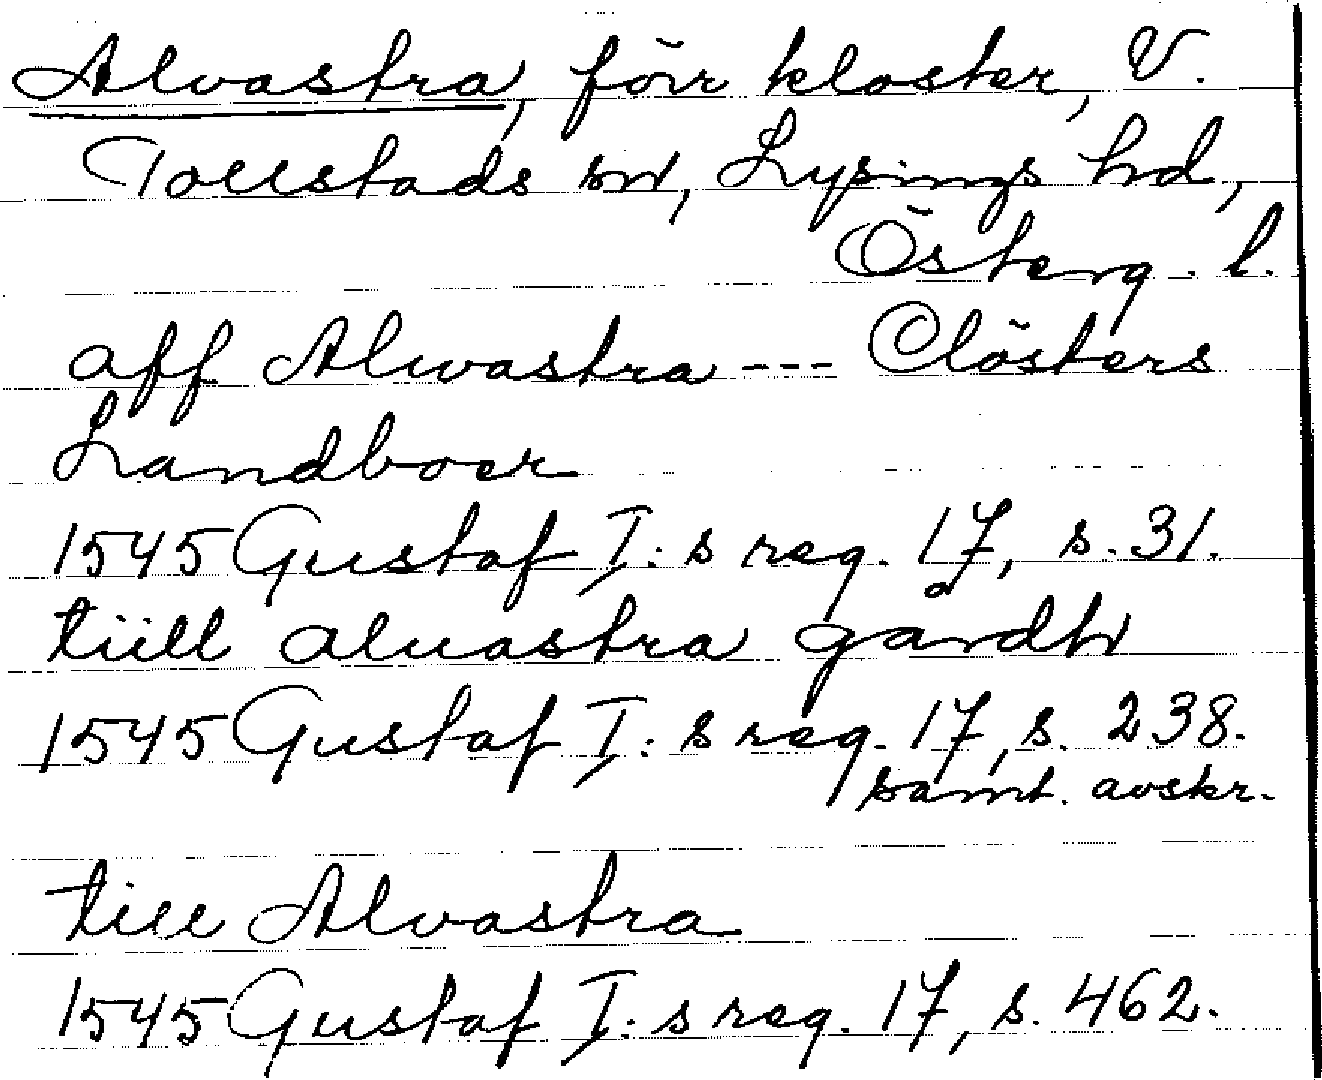 Alvastra, förr kloster, V.
Tollstads sn, Lysings hd,
Österg. l.
aff Alwastra --- Clösters
Landboer
1545 Gustaf I:s reg. 17, s. 31.
tiill aluastra gårdh
1545 Gustaf I:s reg. 17, s. 238.
samt. avskr.
till Alvastra
1545 Gustaf I:s reg. 17, s. 462.